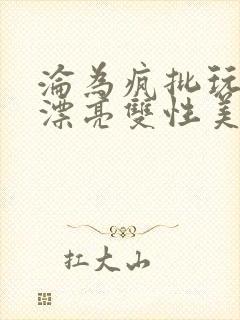 淪為瘋批玩
漂亮雙性美
扛大山